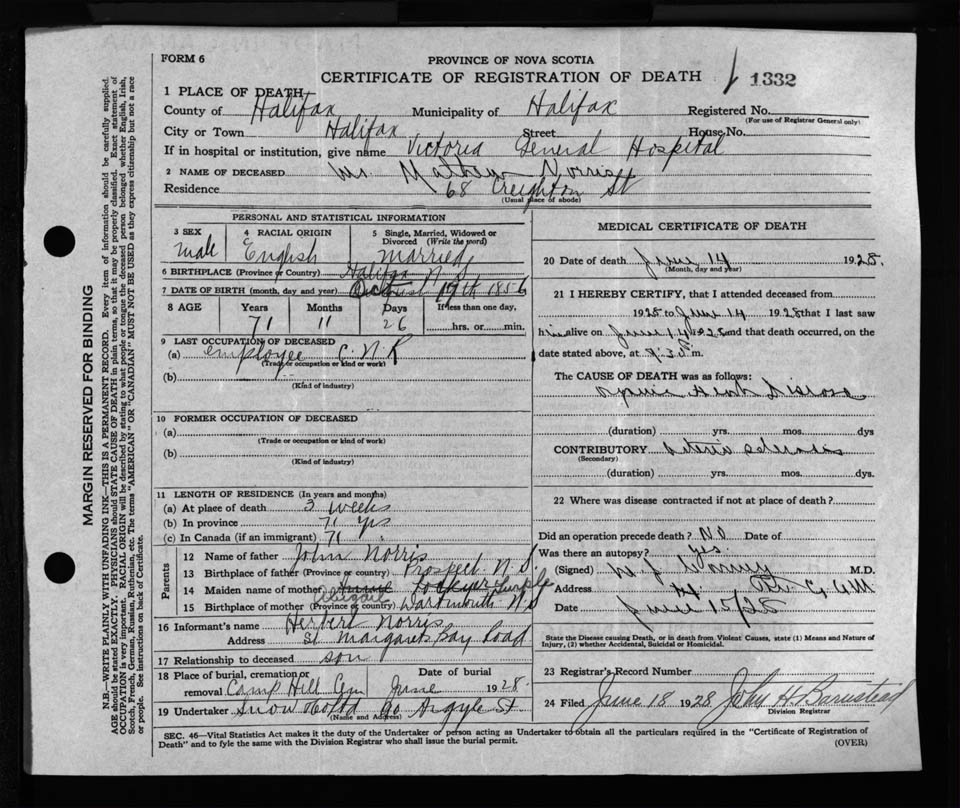 FORM 6
PROVINCE OF NOVA SCOTIA
CERTIFICATE OF REGISTRATION OF DEATH 1332
1 PLACE OF DEATH
County of Halifax Municipality of Halifax Registered No.
(For use of Registrar General only)
City or Town Halifax Street House No.
If in hospital or institution, give name Victoria General Hospital
2 NAME OF DECEASED Mr. Mathew Norris
Residence 68 Creighton St
(Usual place of abode)
PERSONAL AND STATISTICAL INFORMATION
3 SEX Male
4 RACIAL ORIGIN English
5 Single, Married, Widowed or Divorced (Write the word) Married
6 BIRTHPLACE (Province or Country) Halifax N.S
7 DATE OF BIRTH (month, day and year) 19th 1856
8 AGE Years Months Days If less than one day,
71 11 26 hrs. or min.
9 LAST OCCUPATION OF DECEASED
(a) employee C.N.R
(Trade or occupation or kind of work)
(b)
(Kind of industry)
10 FORMER OCCUPATION OF DECEASED
(a)
(Trade or occupation or kind of work)
(b)
(Kind of industry)
11 LENGTH OF RESIDENCE (In years and months)
(a) At place of death 3 weeks
(b) In province 71 yrs
(c) In Canada (if an immigrant) 71 "
Parents
12 Name of father John Norris
13 Birthplace of father (Province or country) Prospect N.S.
14 Maiden name of mother Abigail
15 Birthplace of mother (Province or country) Dartmouth N.S
16 Informant's name Herbert Norris
Address St Margarets Bay Road
17 Relationship to deceased son
18 Place of burial, cremation or removal Camp Hill Cem Date of burial June 1928
19 Undertaker Snow & Co Ltd 90 Argyle St
(Name and Address)
MEDICAL CERTIFICATE OF DEATH
20 Date of death June 14 1928.
(Month, day and year)
21 I HEREBY CERTIFY, that I attended deceased from
1928 to June 14 1928 that I last saw
him alive on June 14 1928 and that death occurred, on the
date stated above, at 9.30 m.
The CAUSE OF DEATH was as follows:
Heart Disease
(duration) yrs. mos. dys
CONTRIBUTORY Arterio sclerosis
(Secondary)
(duration) yrs. mos. dys.
22 Where was disease contracted if not at place of death?
Did an operation precede death? No Date of
Was there an autopsy? yes.
(Signed) M.D.
Address
Date June 15/28
State the Disease causing Death, or in death from Violent Causes, state (1) Means and Nature of Injury, (2) whether Accidental, Suicidal or Homicidal.
23 Registrar's Record Number
24 Filed June 18 1928 John H. Barnstead
Division Registrar
SEC. 46—Vital Statistics Act makes it the duty of the Undertaker or person acting as Undertaker to obtain all the particulars required in the "Certificate of Registration of
Death" and to fyle the same with the Division Registrar who shall issue the burial permit.
(OVER)
MARGIN RESERVED FOR BINDING
N.B.—WRITE PLAINLY WITH UNFADING INK—THIS IS A PERMANENT RECORD. Every item of information should be carefully supplied.
AGE should be stated EXACTLY. PHYSICIANS should STATE CAUSE OF DEATH in plain terms, so that it may be properly classified. Exact statement of
OCCUPATION is very important. RACIAL ORIGIN will be described by stating to what people or tongue the deceased person belonged whether English, Irish,
Scotch, French, German, Russian, Ruthenian, etc. The terms "AMERICAN" OR "CANADIAN" MUST NOT BE USED as they express citizenship but not a race
or people. See instructions on back of Certificate.